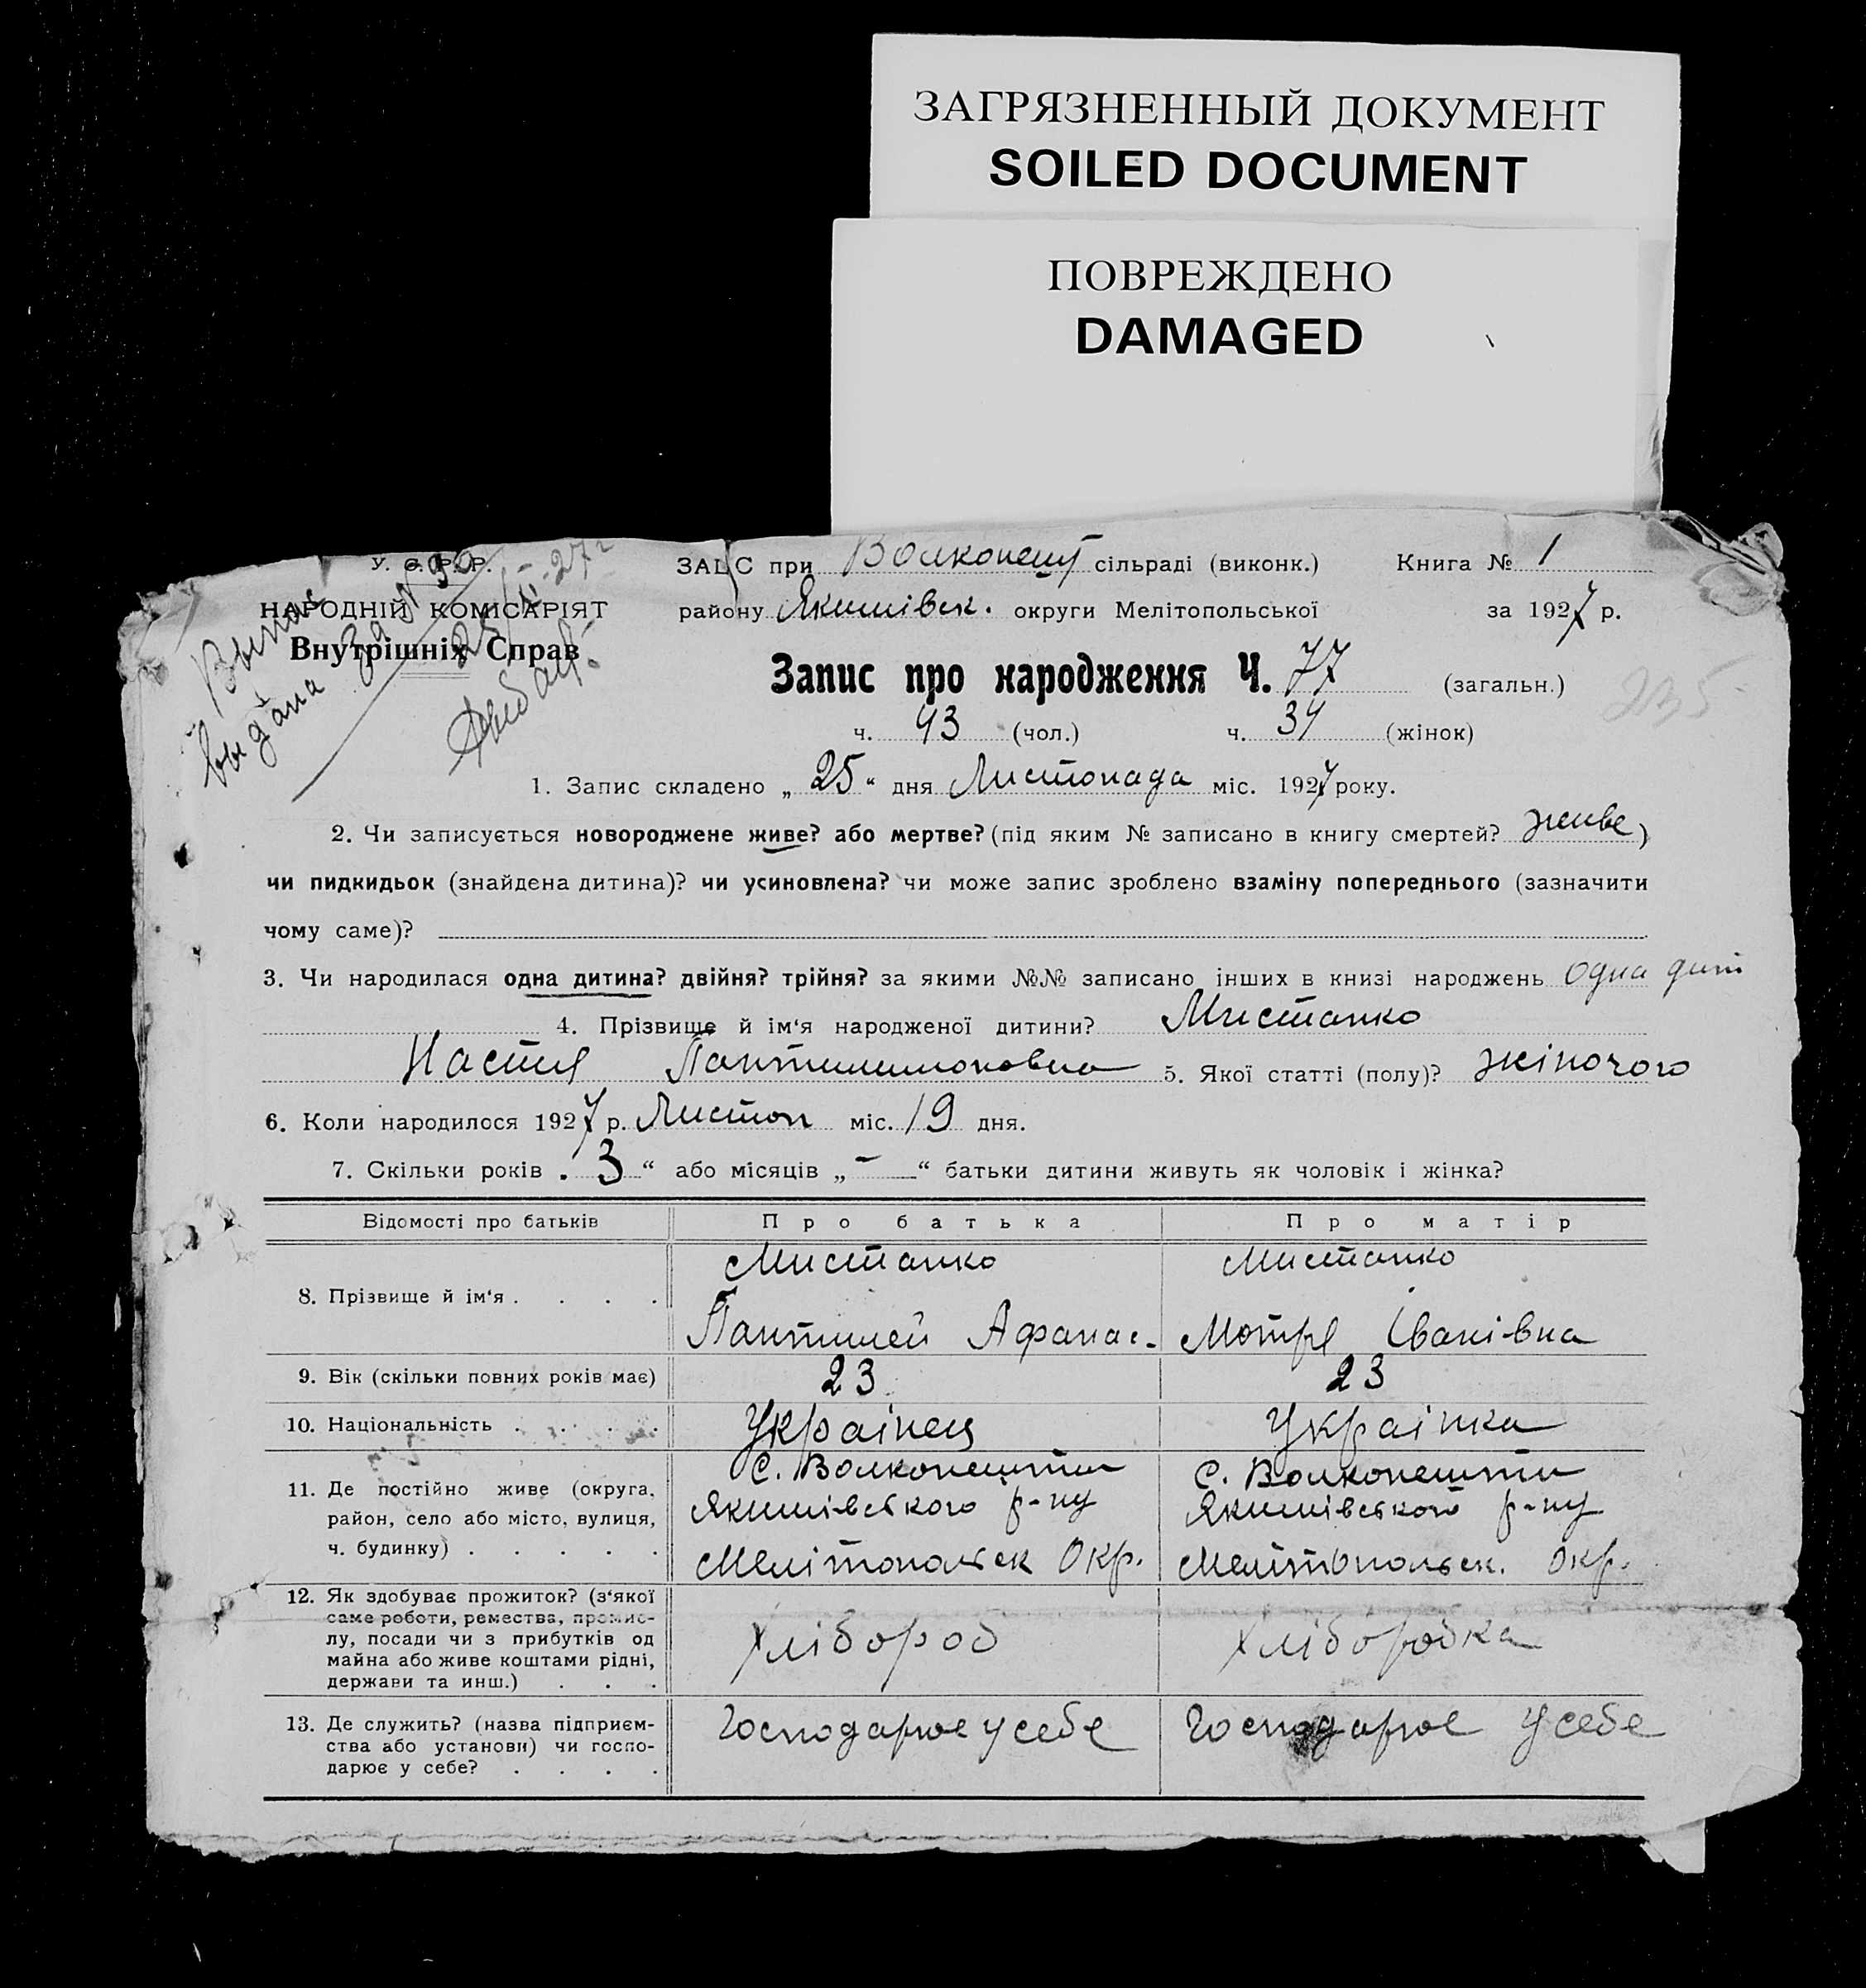 ЗАГРЯЗНЕННЫЙ ДОКУМЕНТ
SOILED DOCUMENT
ПОВРЕЖДЕНО
DAMAGED
У. С. Р. Р.
НАРОДНІЙ КОМІСАРІЯТ
Внутрішніх Справ
Выпис
выдана за № 30
25/XI-27 г
ЗАГС при Волконешт сільраді (виконк.) Книга № 1
району Якимівск. округи Мелітопольської за 1927 р.
Запис про народження Ч. 77 (загальн.)
235
ч. 43 (чол.) ч. 34 (жінок)
1. Запис складено „ 25 “ дня Листопада міс. 1927 року.
2. Чи записується новороджене живе? або мертве? (під яким № записано в книгу смертей? живе)
чи пидкидьок (знайдена дитина)? чи усиновлена? чи може запис зроблено взаміну попереднього (зазначити
чому саме)?
3. Чи народилася одна дитина? двійня? трійня? за якими №№ записано інших в книзі народжень одна дит
4. Прізвище й ім‘я народженої дитини? Мистанко
Настя Пантилимоновна 5. Якої статті (полу)? жіночого
6. Коли народилося 1927 р. Листоп міс. 19 дня.
7. Скільки років „ 3 “ або місяців „ — “ батьки дитини живуть як чоловік і жінка?
Відомості про батьків Про батька Про матір
8. Прізвище й ім‘я . . . . Мистанко Мистанко
Пантилей Афанас. Мотря Іванівна
9. Вік (скільки повних років має) 23 23
10. Національність . . . . . Українец Українка
11. Де постійно живе (округа, район, село або місто, вулиця, ч. будинку) . . . . . с. Волконешти с. Волконешти
Якимівського р-ну Якимівського р-ну
Мелітопольск Окр. Мелітопольск. Окр.
12. Як здобуває прожиток? (з‘якої
саме роботи, ремества, промис-
лу, посади чи з прибутків од
майна або живе коштами рідні,
держави та инш.) . . . Хлібороб Хліборобка
13. Де служить? (назва підприєм-
ства або установи) чи госпо-
дарює у себе? . . . . Господарює у себе Господарює у себе